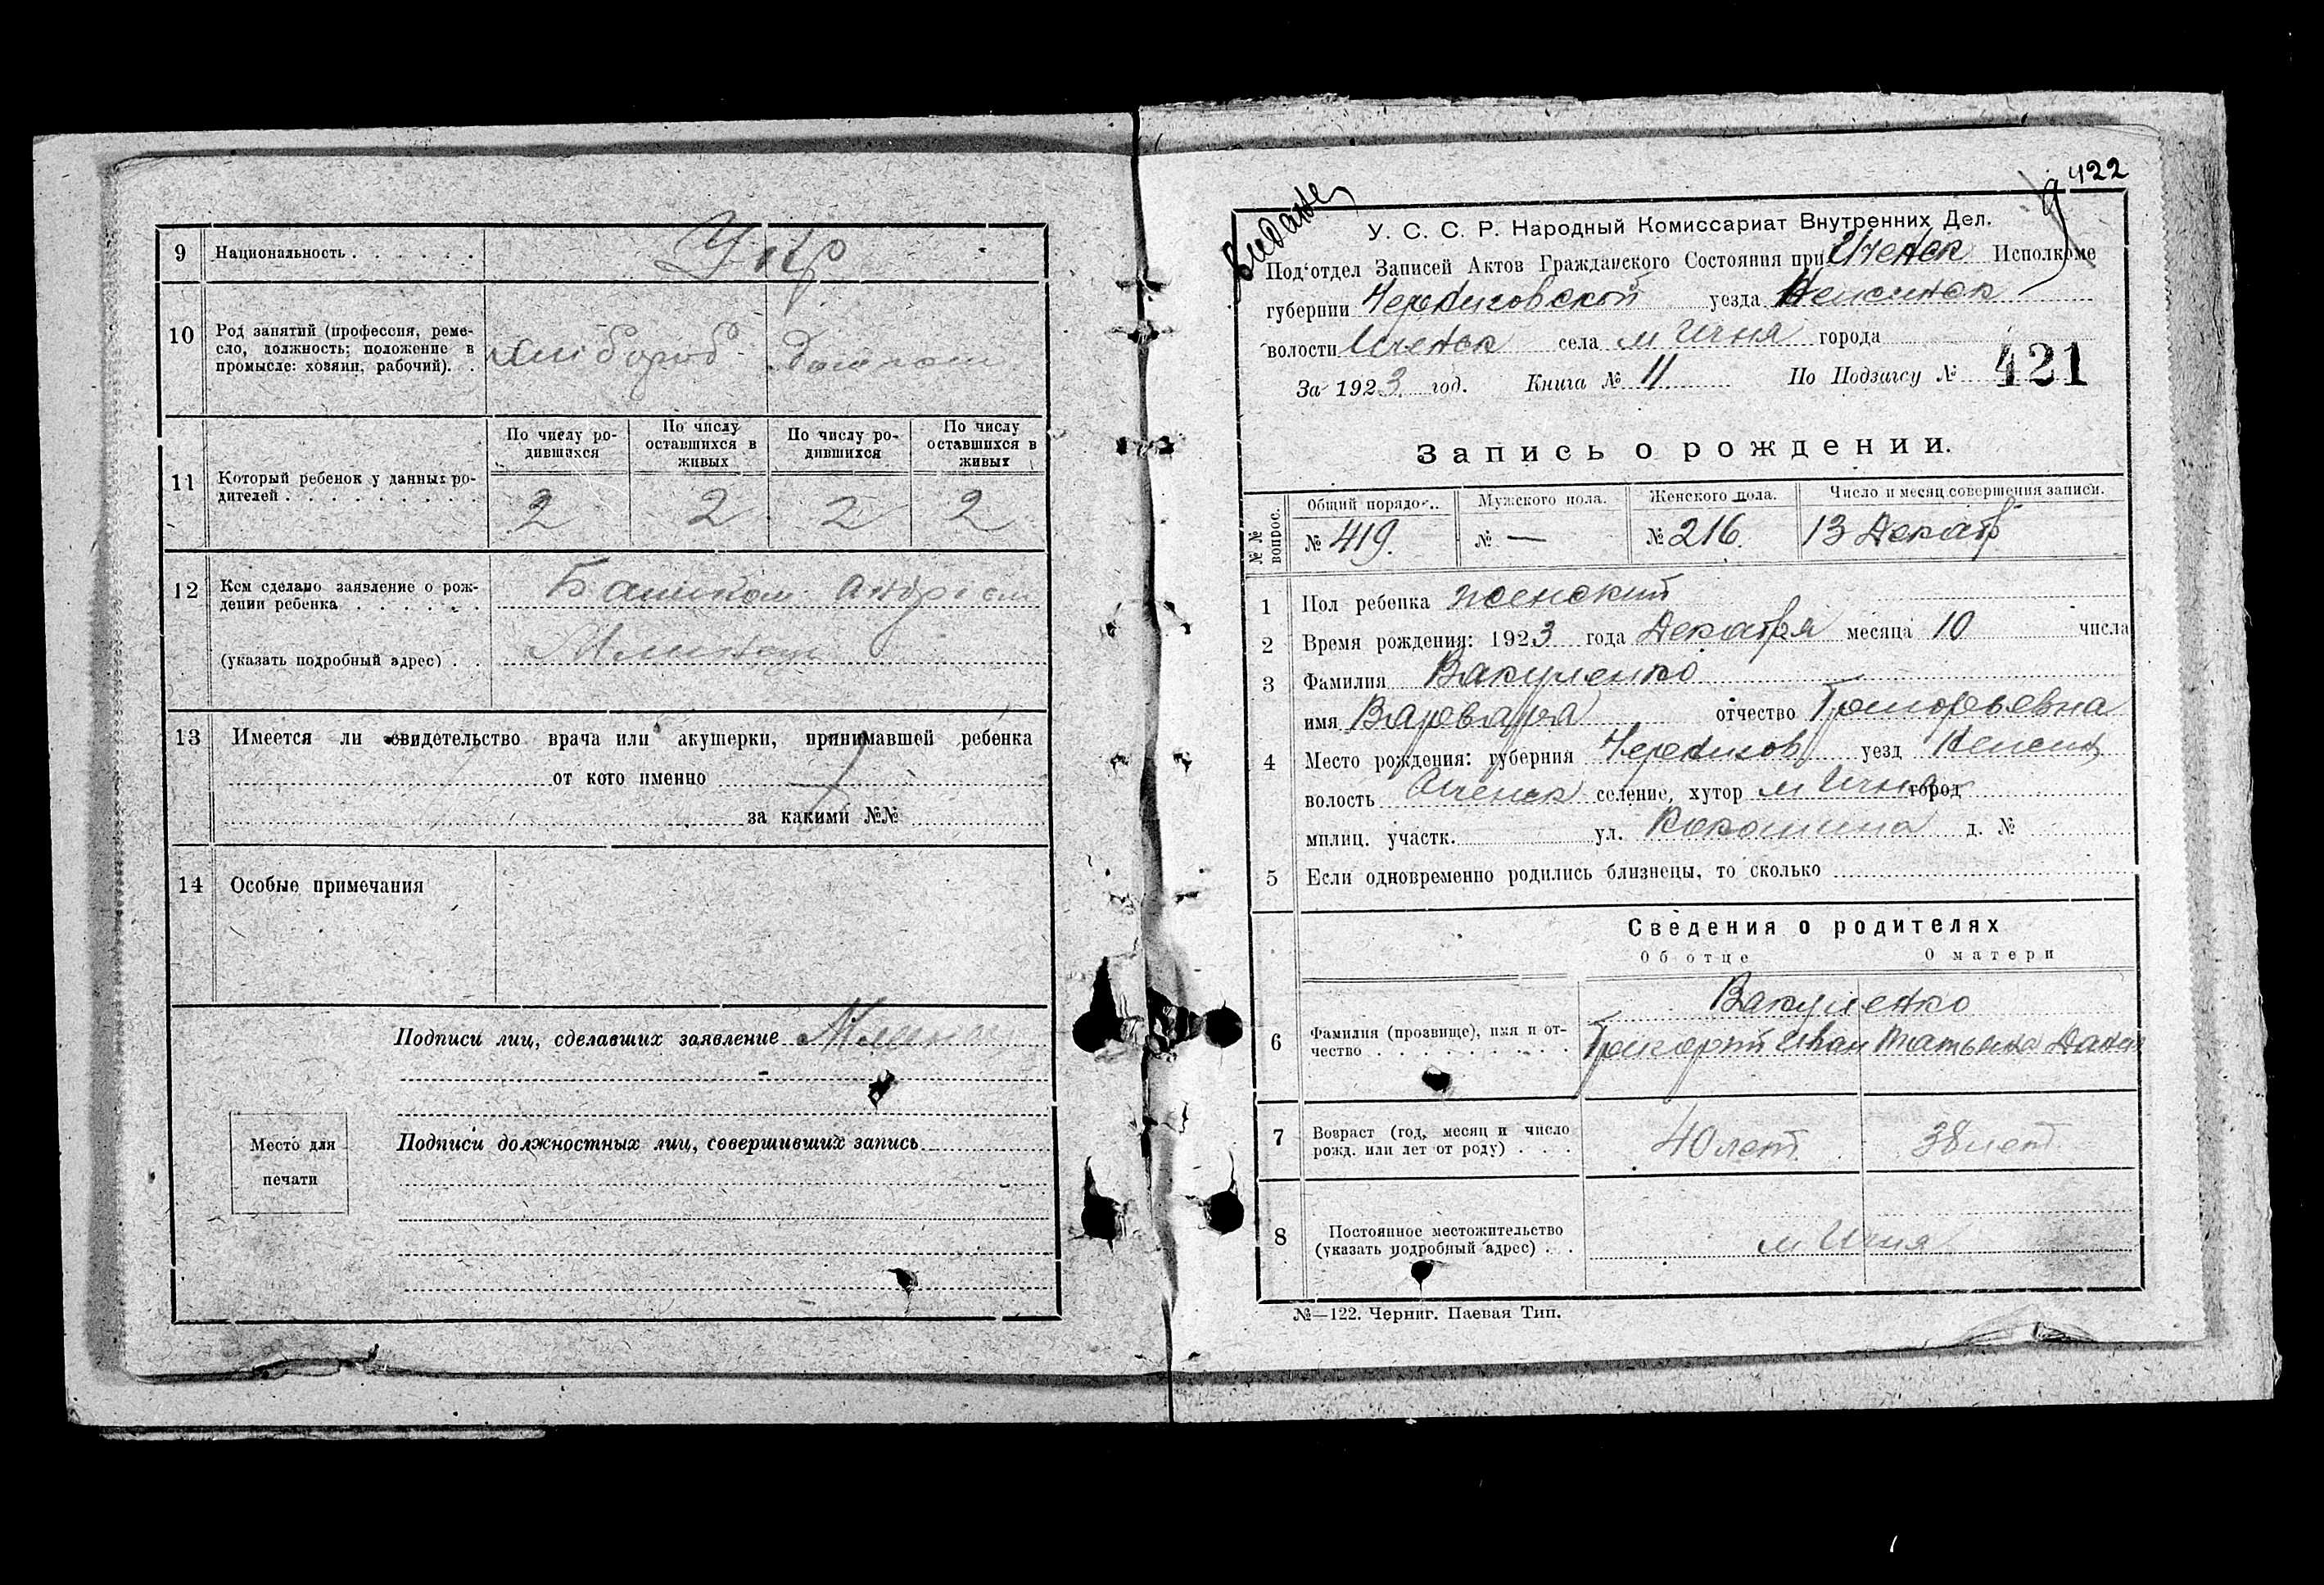 9 Национальность . . . . . . Укр
10 Род занятий (профессия, реме-
сло, должность; положение в
промысле: хозяин, рабочий). .
хлібороб
По числу ро-
дившихся
По числу
оставшихся в
живых
По числу ро-
дившихся
По числу
оставшихся в
живых
11 Который ребенок у данных ро-
дителей . . . . . . . . .
2 2 2 2
12 Кем сделано заявление о рож-
дении ребенка . . . . . .
(указать подробный адрес) . .
13 Имеется ли свидетельство врача или акушерки, принимавшей ребенка
от кого именно
за какими №№
14 Особые примечания
Подписи лиц, сделавших заявление
Место для
печати
Подписи должностных лиц, совершивших запись
422
Видане
У. С. С. Р. Народный Комиссариат Внутренних Дел.
Под'отдел Записей Актов Гражданского Состояния при Иченск Исполкоме
губернии Черниговской уезда
волости Иченск села м Ичня города
За 1923 год. Книга № 11 По Подзагсу № 421
Запись о рождении.
№ № вопрос.
Общий порядо Мужского пола. Женского пола. Число и месяц совершения записи.
№ 419. № — № 216. 13 Декабр
1 Пол ребенка женский
2 Время рождения: 1923 года Декабря месяца 10 числа
3 Фамилия Вакуленко
имя Варвара отчество Григорьевна
4 Место рождения: губерния Чернигов уезд
волость Иченск селение, хутор м Ичня город
милиц. участк. ул. д. №
5 Если одновременно родились близнецы, то сколько
Сведения о родителях
Об отце О матери
6 Фамилия (прозвище), имя и от-
чество . . . . . . . . . .
Вакуленко
Григорий Иван Татьяна Данил
7 Возраст (год, месяц и число
рожд. или лет от роду) . . .
40 лет 38 лет
8 Постоянное местожительство
(указать подробный адрес) . .
м Ичня
№—122. Черниг. Паевая Тип.